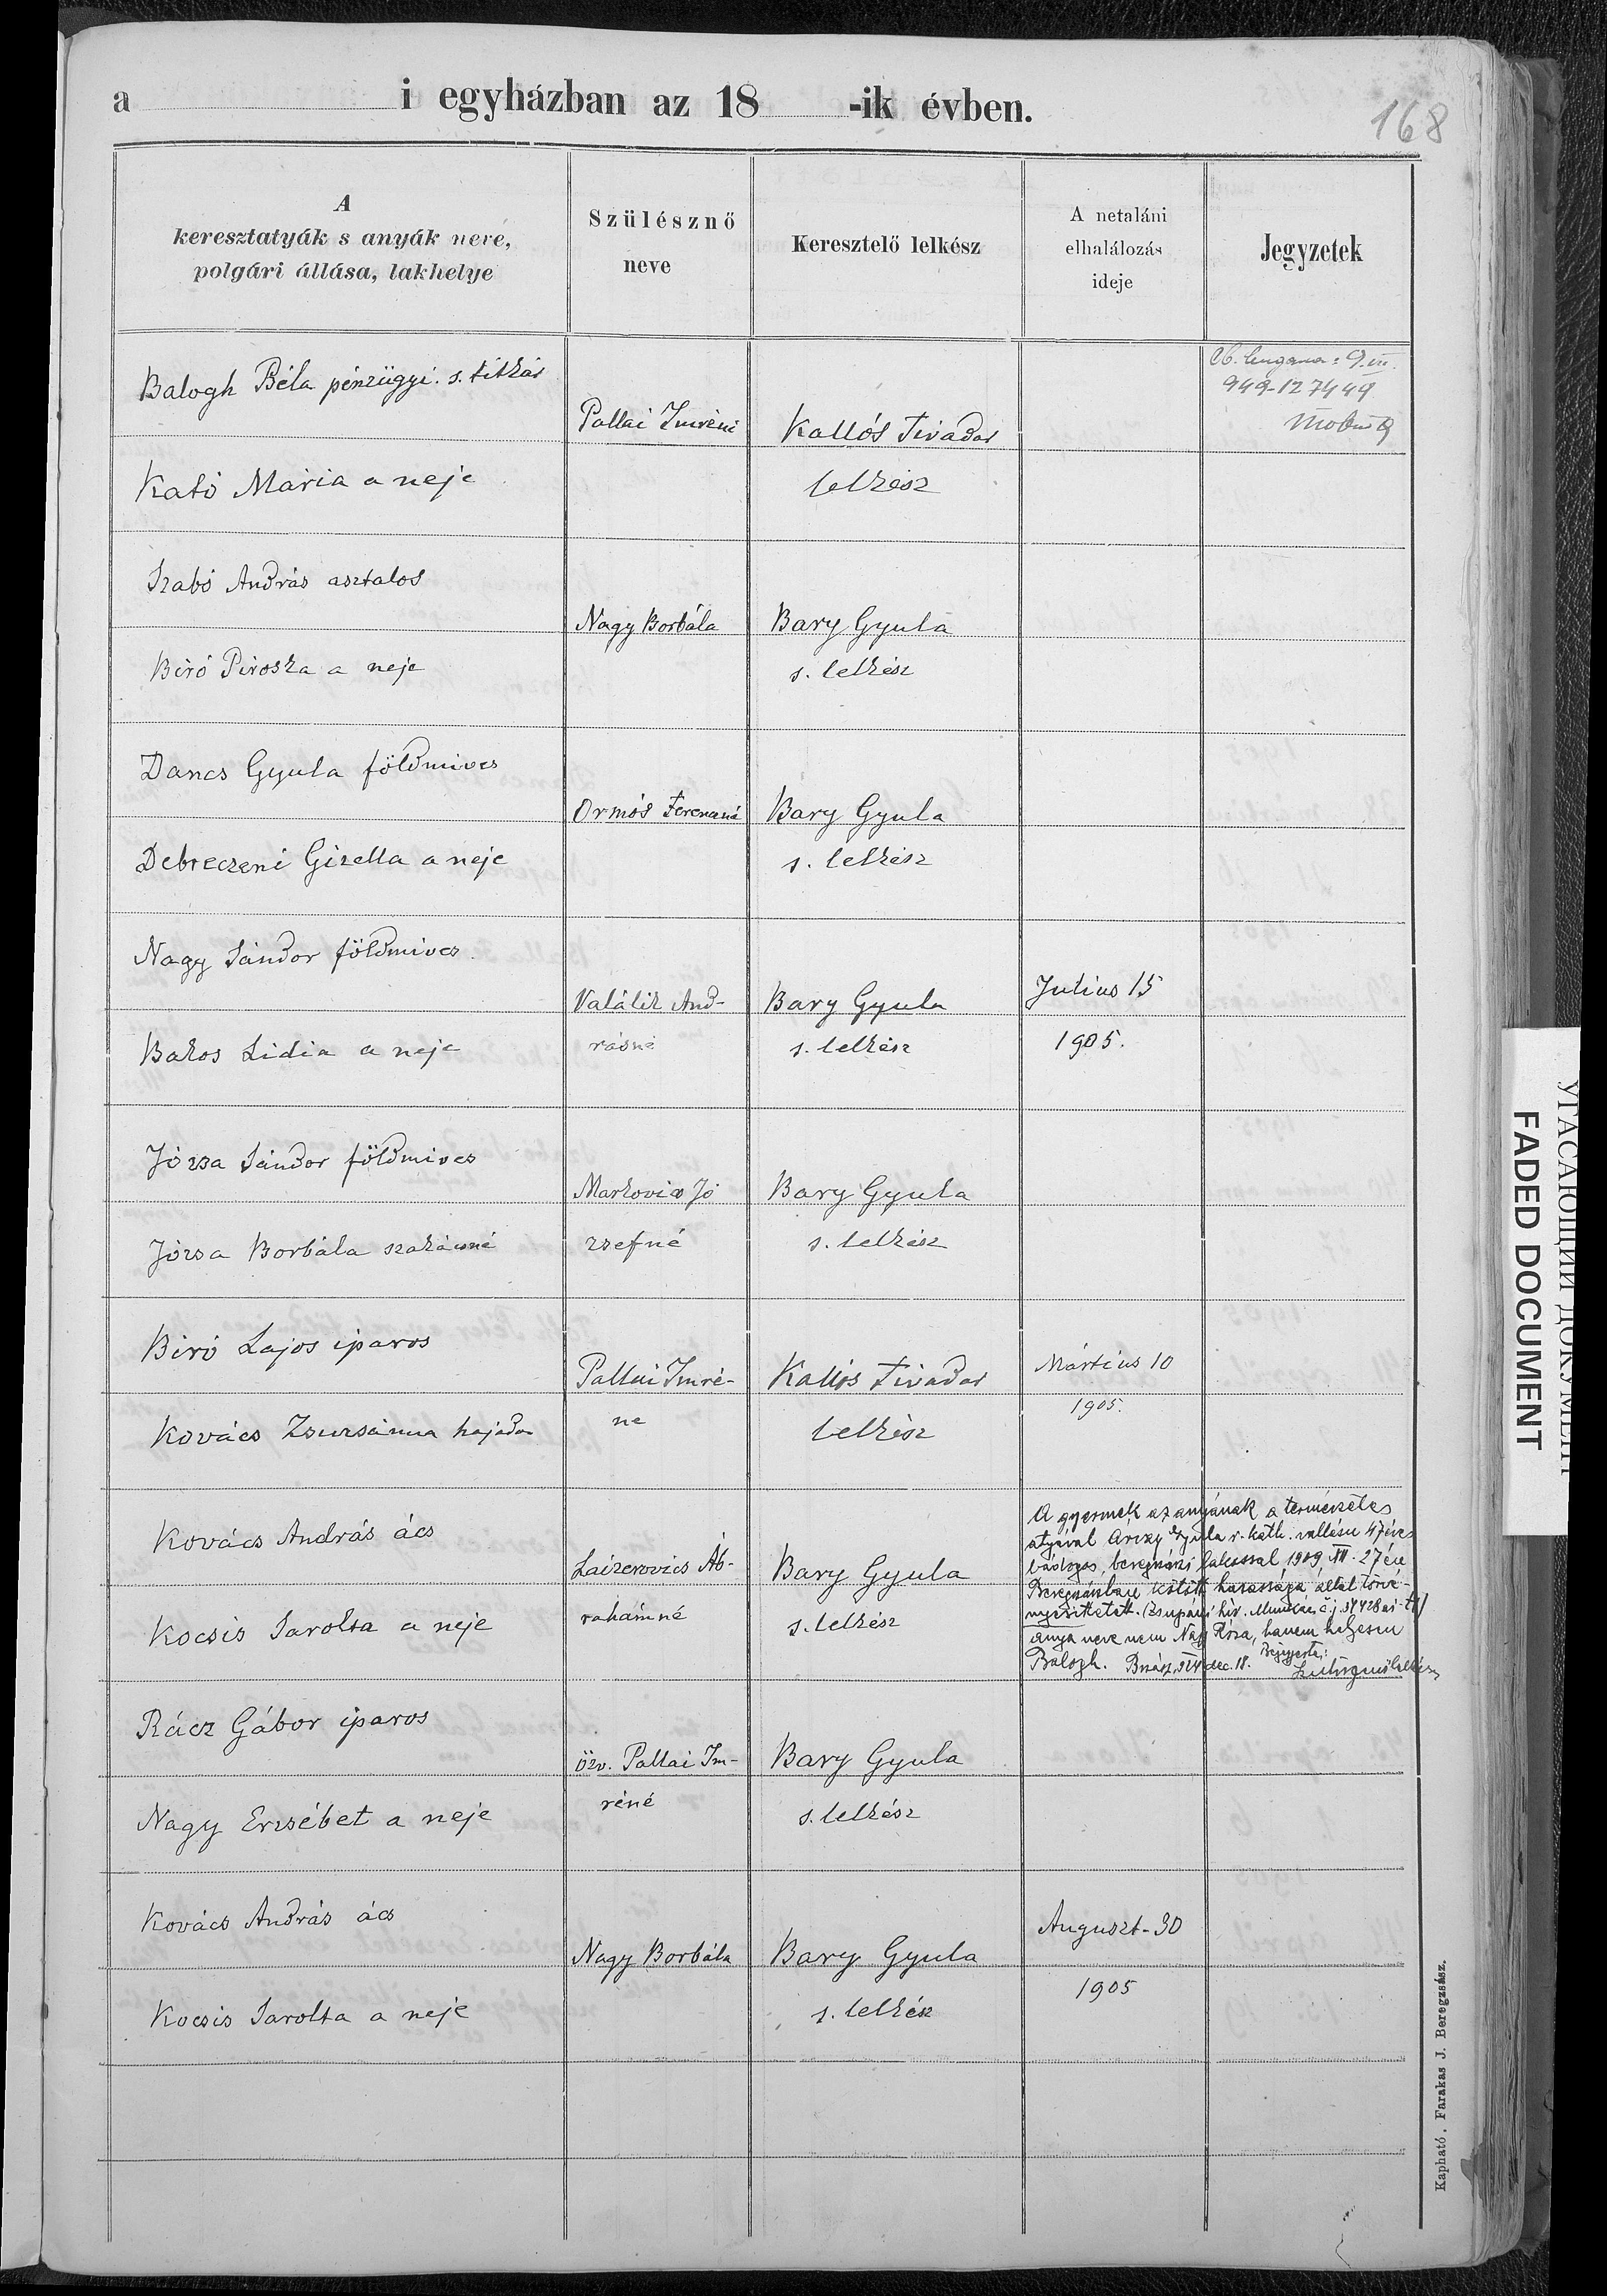 a i egyházban az 18 -ik évben.
168
A
keresztatyák s anyák neve,
polgári állása, lakhelye
Szülésznő
neve
Keresztelő lelkész
A netaláni
elhalálozás
ideje
Jegyzetek
Balogh Béla pénzügyi. s. titkár
Pallai Imréné
Kallós Tivadar
949-127449
Kató Mária a neje
lelkész
Szabó András asztalos
Nagy Borbála
Bary Gyula
Biró Piroska a neje
s. lelkész
Dancs Gyula földmives
Ormós Ferencné
Bary Gyula
Debreczeni Gizella a neje
s. lelkész
Nagy Sándor földmives
Valálik And-
Bary Gyula
Julius 15
Bakos Lidia a neje
rásné
s. lelkész
1905.
Józsa Sándor földmives
Markovics Jó
Bary Gyula
Józsa Borbála szakácsné
zsefné
s. lelkész
Biró Lajos iparos
Pallai Imré-
Kallós Tivadar
Mártius 10
Kovács Zsuzsánna hajadon
ne
lelkész
1905.
Kovács András ács
Laizerovics Áb-
Bary Gyula
Kocsis Sarolta a neje
rahámné
s. lelkész
A gyermek az anyának a természetes
atyával Arczy Gyula r. kath. vallásu 47 éves
bádogos, beregszászi lakossal 1909 XII. 27 én
Beregszászban kötött házassága által törvé-
nyesittetett. (Zsupáni hiv. Munkács č. j. 37428
anya neve nem Nagy Róza, hanem helyesen
Balogh. dec. 18. Bejegyezte:
Rácz Gábor iparos
özv. Pallai Im-
Bary Gyula
Nagy Erzsébet a neje
réné
s. lelkész
Kovács András ács
Nagy Borbála
Bary Gyula
Auguszt-30
Kocsis Sarolta a neje
s. lelkész
1905
Kapható . Farakas J. Beregzsász.
УГАСАЮЩИЙ ДОКУМЕНТ
FADED DOCUMENT